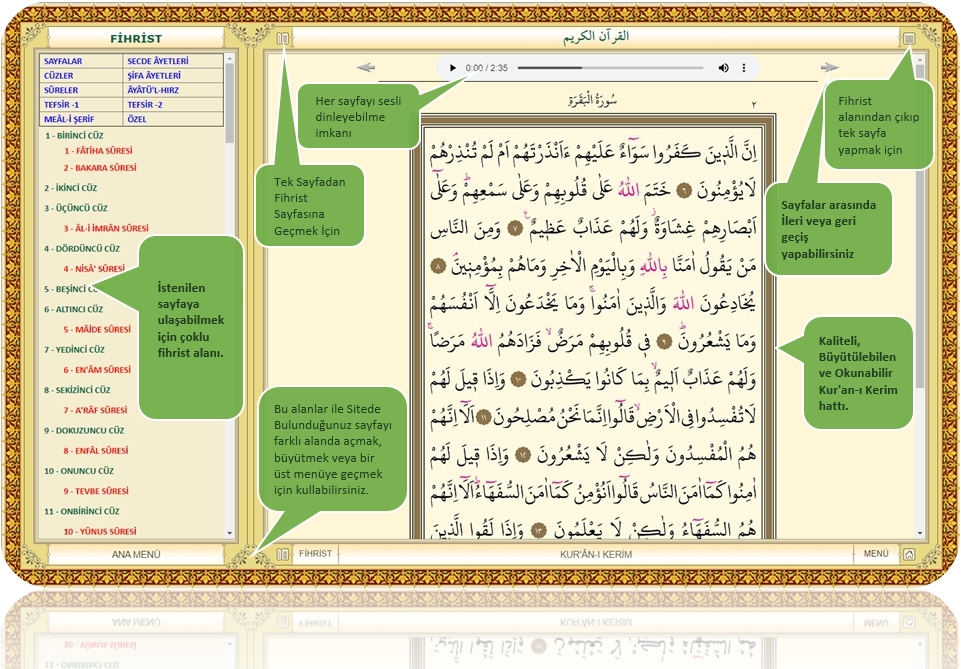 FİHRİST
القرآن الكريم
SAYFALAR
SECDE ÂYETLERİ
CÜZLER
ŞİFA ÂYETLERİ
SÛRELER
ÂYÂTÜ'L-HIRZ
TEFSİR -1
TEFSİR -2
MEÂL-İ ŞERİF
ÖZEL
1 - BİRİNCİ CÜZ
1 - FÂTİHA SÛRESİ
2 - BAKARA SÛRESİ
2 - İKİNCİ CÜZ
3 - ÜÇÜNCÜ CÜZ
3 - ÂL-İ İMRÂN SÛRESİ
4 - DÖRDÜNCÜ CÜZ
4 - NİSÂ' SÛRESİ
5 - BEŞİNCİ CÜZ
6 - ALTINCI CÜZ
5 - MÂİDE SÛRESİ
7 - YEDİNCİ CÜZ
6 - EN'ÂM SÛRESİ
8 - SEKİZİNCİ CÜZ
7 - A'RÂF SÛRESİ
9 - DOKUZUNCU CÜZ
8 - ENFÂL SÛRESİ
10 - ONUNCU CÜZ
9 - TEVBE SÛRESİ
11 - ONBİRİNCİ CÜZ
10 - YÛNUS SÛRESİ
ANA MENÜ
0:00 / 2:35
Her sayfayı sesli
dinleyebilme
imkanı
Tek Sayfadan
Fihrist
Sayfasına
Geçmek İçin
İstenilen
sayfaya
ulaşabilmek
için çoklu
fihrist alanı.
Bu alanlar ile Sitede
Bulunduğunuz sayfayı
farklı alanda açmak,
büyütmek veya bir
üst menüye geçmek
için kullabilirsiniz.
Fihrist
alanından çıkıp
tek sayfa
yapmak için
Sayfalar arasında
İleri veya geri
geçiş
yapabilirsiniz
Kaliteli,
Büyütülebilen
ve Okunabilir
Kur'an-ı Kerim
hattı.
٢
سُورَةُ الْبَقَرَةِ
اِنَّ الَّذٖينَ كَفَرُوا سَوَٓاءٌ عَلَيْهِمْ ءَاَنْذَرْتَهُمْ اَمْ لَمْ تُنْذِرْهُمْ
لَا يُؤْمِنُونَ ﴿٦﴾ خَتَمَ اللّٰهُ عَلٰى قُلُوبِهِمْ وَعَلٰى سَمْعِهِمْؕ وَعَلٰٓى
اَبْصَارِهِمْ غِشَاوَةٌؗ وَلَهُمْ عَذَابٌ عَظٖيمٌࣖ ﴿٧﴾ وَمِنَ النَّاسِ
مَنْ يَقُولُ اٰمَنَّا بِاللّٰهِ وَبِالْيَوْمِ الْاٰخِرِ وَمَاهُمْ بِمُؤْمِنٖينَۘ ﴿٨﴾
يُخَادِعُونَ اللّٰهَ وَالَّذٖينَ اٰمَنُواۚ وَمَا يَخْدَعُونَ اِلَّٓا اَنْفُسَهُمْ
وَمَا يَشْعُرُونَؕ ﴿٩﴾ فٖى قُلُوبِهِمْ مَرَضٌۙ فَزَادَهُمُ اللّٰهُ مَرَضًاۚ
وَلَهُمْ عَذَابٌ اَلٖيمٌۙ بِمَا كَانُوا يَكْذِبُونَ ﴿١٠﴾ وَاِذَا قٖيلَ لَهُمْ
لَا تُفْسِدُوا فِى الْاَرْضِۙ قَالُٓوا اِنَّمَا نَحْنُ مُصْلِحُونَ ﴿١١﴾ اَلَٓا اِنَّهُمْ
هُمُ الْمُفْسِدُونَ وَلٰكِنْ لَا يَشْعُرُونَ ﴿١٢﴾ وَاِذَا قٖيلَ لَهُمْ
اٰمِنُوا كَمَٓا اٰمَنَ النَّاسُ قَالُٓوا اَنُؤْمِنُ كَمَٓا اٰمَنَ السُّفَهَٓاءُؕ اَلَٓا اِنَّهُمْ
هُمُ السُّفَهَٓاءُ وَلٰكِنْ لَا يَعْلَمُونَ ﴿١٣﴾ وَاِذَا لَقُوا الَّذٖينَ
FİHRİST
KUR'ÂN-I KERİM
MENÜ